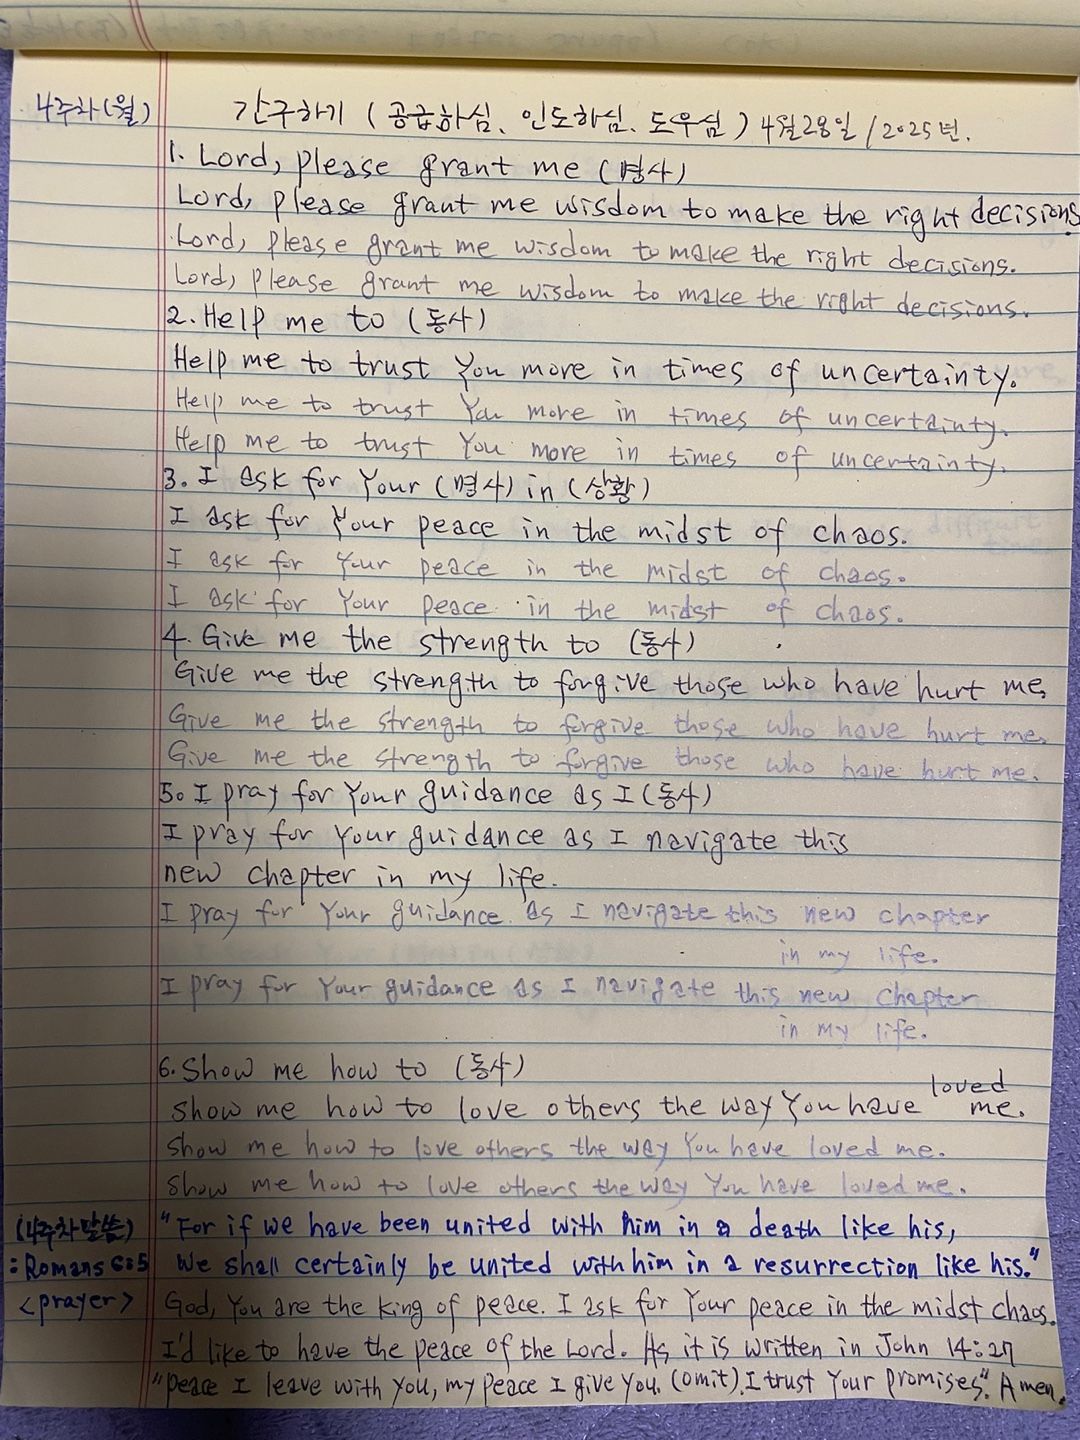 4주차(월) 간구하기 (공급하심、인도하심、도우심) 4월28일/2025년.
1. Lord, please grant me (명사)
Lord, please grant me wisdom to make the right decisions
Lord, please grant me wisdom to make the right decisions.
Lord, please grant me wisdom to make the right decisions.
2. Help me to (동사)
Help me to trust You more in times of uncertainty.
Help me to trust You more in times of uncertainty.
Help me to trust You more in times of uncertainty.
3. I ask for Your (명사) in (상황)
I ask for Your peace in the midst of chaos.
I ask for Your peace in the midst of chaos.
I ask for Your peace in the midst of chaos.
4. Give me the strength to (동사)
Give me the strength to forgive those who have hurt me.
Give me the strength to forgive those who have hurt me.
Give me the strength to forgive those who have hurt me.
5. I pray for Your guidance as I (동사)
I pray for Your guidance as I navigate this
new chapter in my life.
I pray for Your guidance as I navigate this new chapter
in my life.
I pray for Your guidance as I navigate this new chapter
in my life.
6. Show me how to (동사)
Show me how to love others the way You have loved me.
Show me how to love others the way You have loved me.
Show me how to love others the way You have loved me.
(4주차말씀) "For if we have been united with him in a death like his,
: Romans 6:5 We shall certainly be united with him in a resurrection like his."
<prayer> God, You are the king of peace. I ask for Your peace in the midst chaos.
I'd like to have the peace of the Lord. As it is written in John 14:27
"peace I leave with you, my peace I give you. (omit). I trust Your promises". Amen.